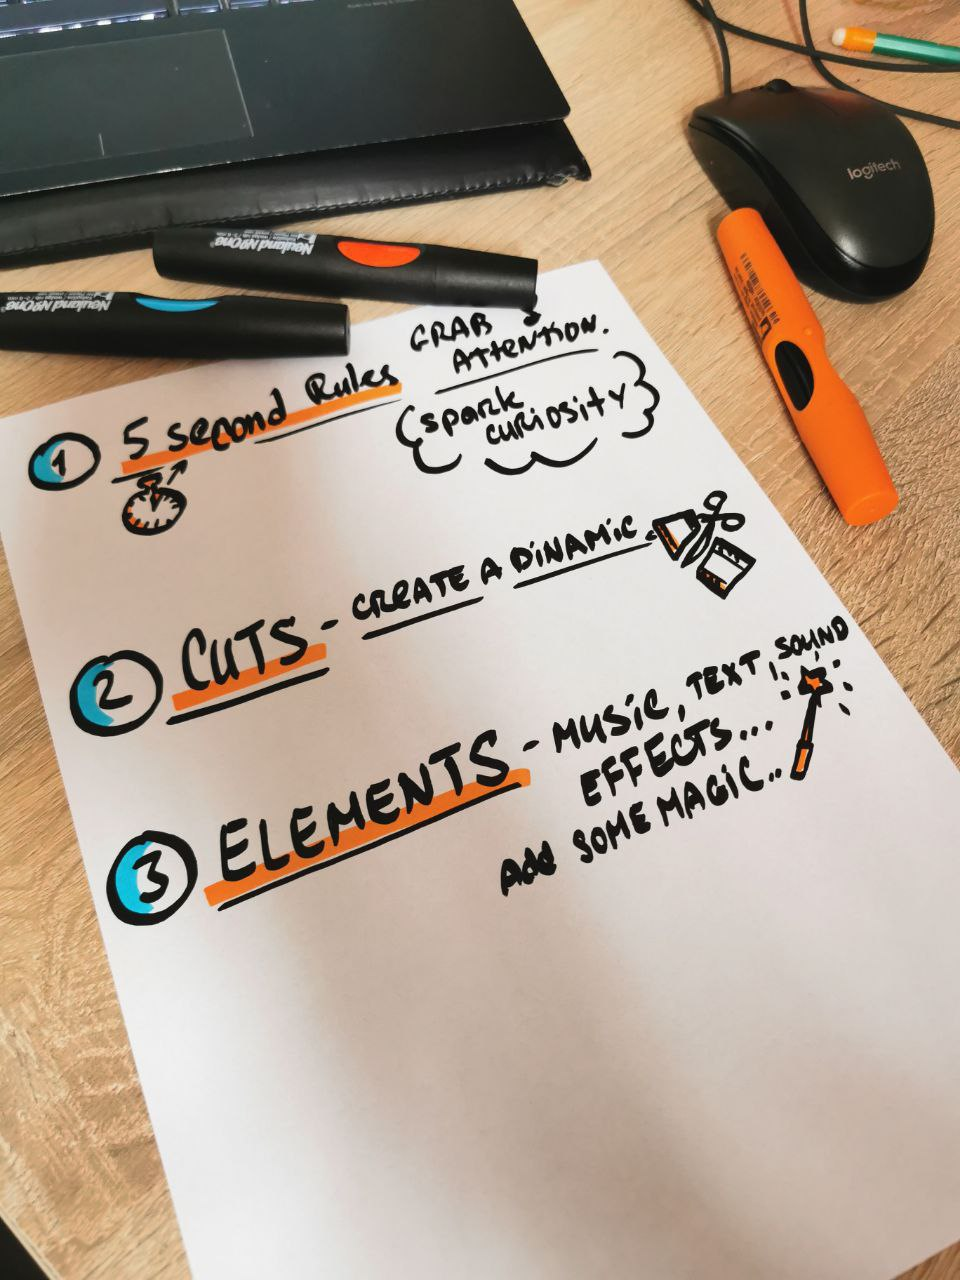 logitech
Neuland No.One
Neuland No.One
GRAB
Attention.
1 5 second Rules
(spark
curiosity)
2 CUTS - CREATE A DiNAMiC.
3 ELEMENTS - MUSiC, TEXT, SOUND
EFFECTS...
Add SOME MAGiC...